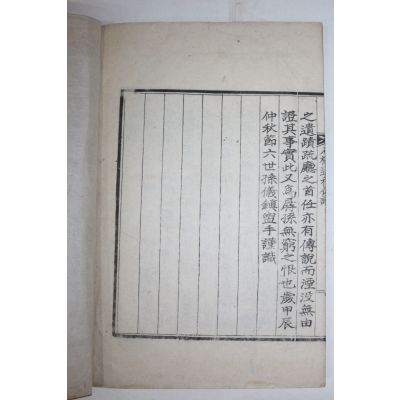 之遺蹟疏廳之首任亦有傳說而湮没無由
證其事實此又爲孱孫無窮之恨也歲甲辰
仲秋節六世孫儀鎮盥手謹識